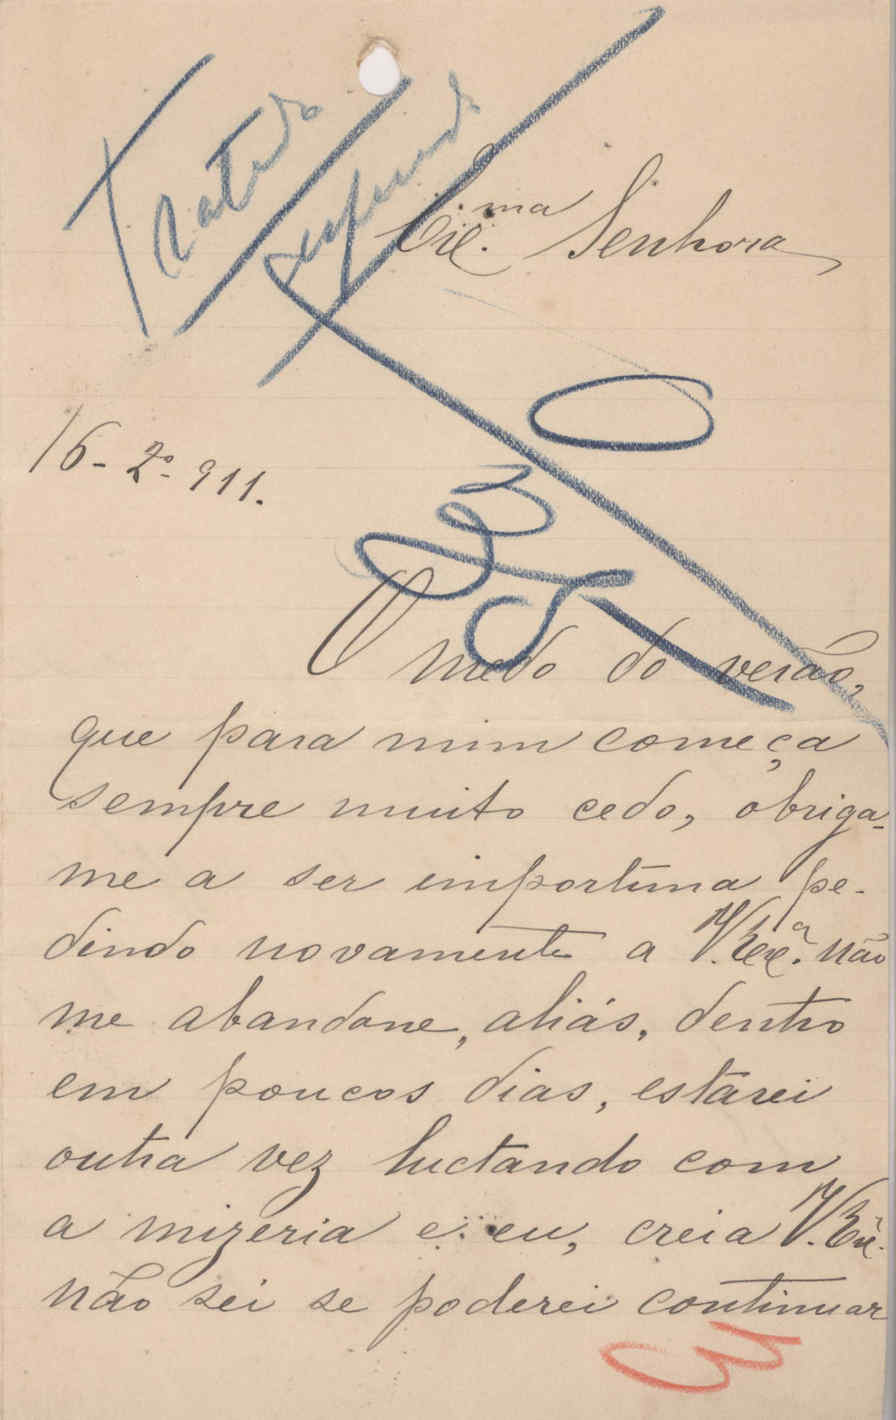 Tratado
respond
Exma Senhora
16-2º-911.
O medo do verão,
que para mim começa
sempre muito cedo, obriga-
me a ser importuna pe-
dindo novamente a V. Exª. não
me abandone, aliás, dentro
em poucos dias, estarei
outra vez luctando com
a mizeria e eu, creia V. Exª.
não sei se poderei continuar